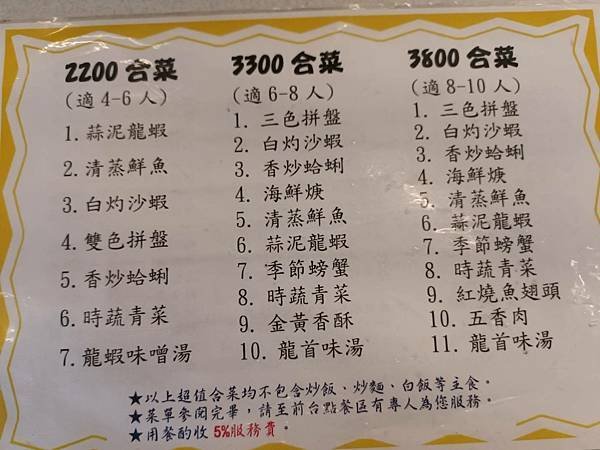 2200 合菜
(適 4-6 人)
1. 蒜泥龍蝦
2. 清蒸鮮魚
3. 白灼沙蝦
4. 雙色拼盤
5. 香炒蛤蜊
6. 時蔬青菜
7. 龍蝦味噌湯
3300 合菜
(適 6-8 人)
1. 三色拼盤
2. 白灼沙蝦
3. 香炒蛤蜊
4. 海鮮焿
5. 清蒸鮮魚
6. 蒜泥龍蝦
7. 季節螃蟹
8. 時蔬青菜
9. 金黃香酥
10. 龍首味湯
3800 合菜
(適 8-10 人)
1. 三色拼盤
2. 白灼沙蝦
3. 香炒蛤蜊
4. 海鮮焿
5. 清蒸鮮魚
6. 蒜泥龍蝦
7. 季節螃蟹
8. 時蔬青菜
9. 紅燒魚翅頭
10. 五香肉
11. 龍首味湯
★以上超值合菜均不包含炒飯、炒麵、白飯等主食。
★菜單參閱完畢，請至前台點餐區有專人為您服務。
★用餐酌收 5%服務費。